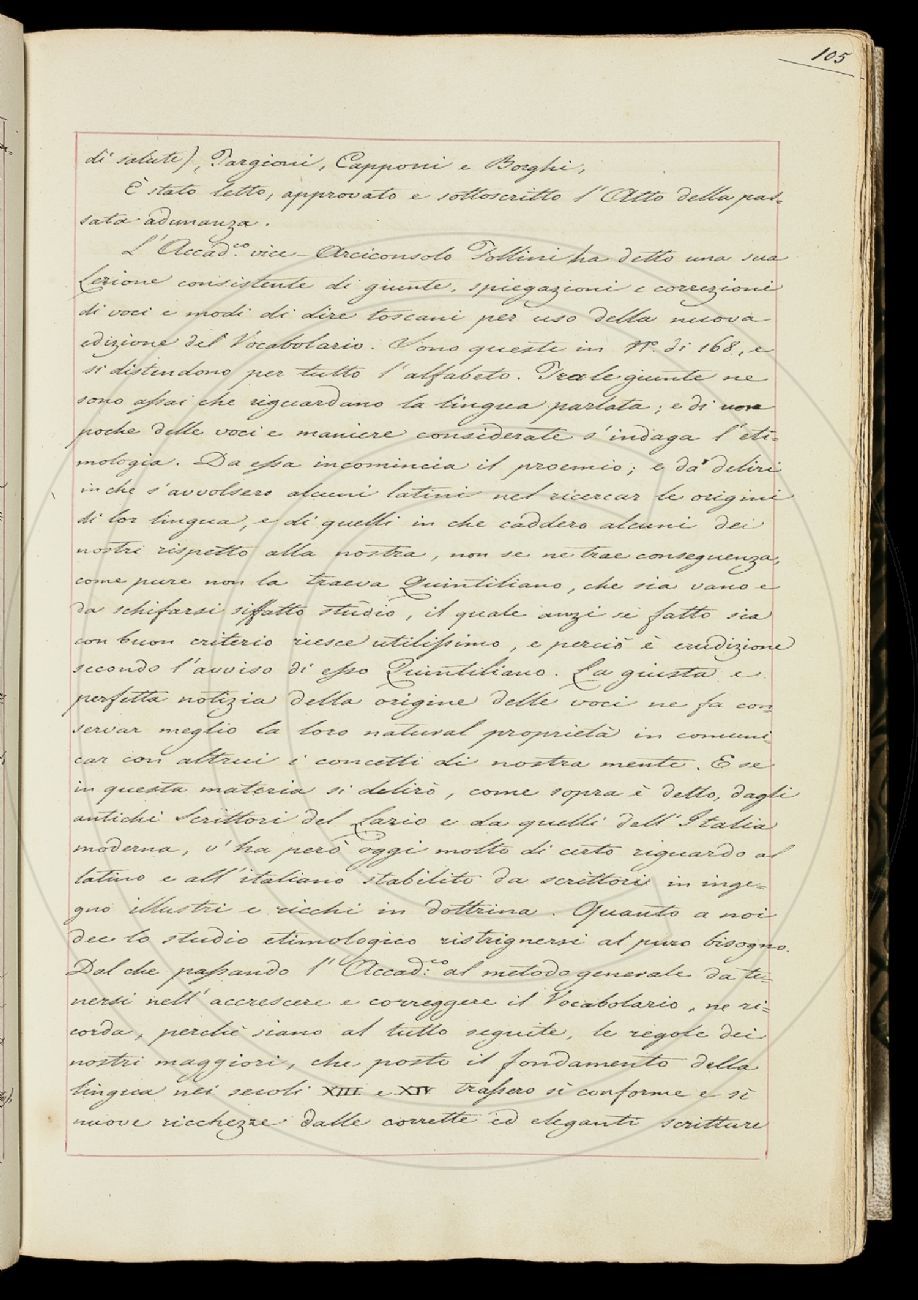 105
di salute), Targioni, Capponi e Borghi,
È stato letto, approvato e sottoscritto l'Atto della pas-
sata adunanza.
L'Accad.co vice-Arciconsolo Follini ha detto una sua
Lezione consistente di giunte, spiegazioni e correzioni
di voci e modi di dire toscani per uso della nuova
edizione del Vocabolario. Sono queste in N.o di 168, e
si distendono per tutto l'alfabeto. Tra le giunte ne
sono assai che riguardano la lingua parlata; e di non
poche delle voci e maniere considerate s'indaga l'eti-
mologia. Da essa incomincia il proemio; e da' deliri
in che s'avvolsero alcuni latini nel ricercar le origini
di lor lingua, e di quelli in che caddero alcuni dei
nostri rispetto alla nostra, non se ne trae conseguenza,
come pure non la traeva Quintiliano, che sia vano e
da schifarsi siffatto studio, il quale anzi se fatto sia
con buon criterio riesce utilissimo, e perciò è erudizione
secondo l'avviso di esso Quintiliano. La giusta e
perfetta notizia della origine delle voci ne fa con-
servar meglio la loro natural proprietà in comuni-
car con altrui i concetti di nostra mente. E se
in questa materia si delirò, come sopra è detto, dagli
antichi Scrittori del Lazio e da quelli dell'Italia
moderna, v'ha però oggi molto di certo riguardo al
latino e all'italiano stabilito da scrittori in inge-
gno illustri e ricchi in dottrina. Quanto a noi
dee lo studio etimologico ristrignersi al puro bisogno.
Dal che passando l'Accad.co al metodo generale da te-
nersi nell'accrescere e correggere il Vocabolario, ne ri-
corda, perchè siano al tutto seguite, le regole dei
nostri maggiori, che posto il fondamento della
lingua nei secoli XIII e XIV trassero sì conforme e sì
nuove ricchezze dalle corrette ed eleganti scritture